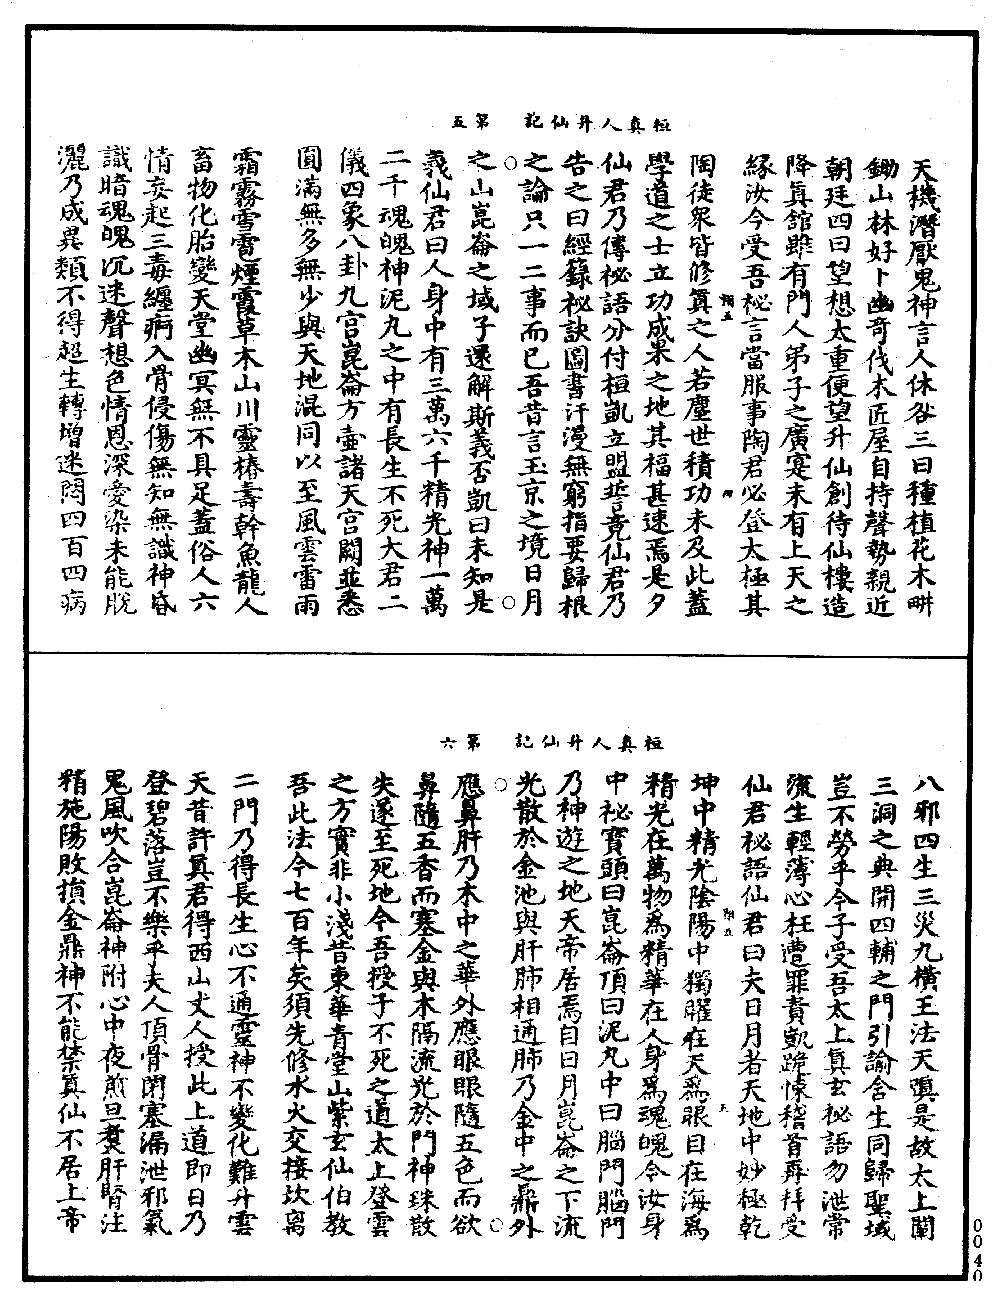 桓真人升仙記　第五
天機潛厭鬼神言人休咎三曰種植花木畊
鋤山林好卜幽奇伐木匠屋自持聲勢親近
朝廷四曰望想太重便望升仙創待仙樓造
降真館雖有門人弟子之廣寔未有上天之
緣汝今受吾秘言當服事陶君必登太極其
陶徒衆皆修真之人若塵世積功未及此蓋
學道之士立功成果之地其福甚速焉是夕
仙君乃傳祕語分付桓凱立盟誓竟仙君乃
告之曰經籙祕訣圖書汗漫無窮指要歸根
之論只一二事而已吾昔言玉京之境日月
之山崑崙之域子還解斯義否凱曰未知是
義仙君曰人身中有三萬六千精光神一萬
二千魂魄神泥丸之中有長生不死大君二
儀四象八卦九宮崑崙方壺諸天宮闕並悉
圓滿無多無少與天地混同以至風雲雷雨
霜霧雪雹煙霞草木山川靈椿壽幹魚龍人
畜物化胎變天堂幽冥無不具足蓋俗人六
情妄起三毒纏痾入骨侵傷無知無識神昏
識暗魂魄沉迷聲想色情恩深愛染未能脫
灑乃成異類不得超生轉增迷悶四百四病
桓真人升仙記　第六
八邪四生三災九橫王法天彰是故太上闡
三洞之典開四輔之門引諭含生同歸聖域
豈不勞乎今子受吾太上真玄秘語勿泄常
流生輕薄心枉遭罪責凱跪悚稽首再拜受
仙君秘語仙君曰夫日月者天地中妙極乾
坤中精光陰陽中獨曜在天為眼目在海為
精光在萬物為精華在人身為魂魄令汝身
中祕寶頭曰崑崙頂曰泥丸中曰腦門腦門
乃神遊之地天帝居焉目曰月崑崙之下流
光散於金池與肝肺相通肺乃金中之鼎外
應鼻肝乃木中之華外應眼眼隨五色而欲
鼻隨五香而塞金與木隔流光於門神珠散
失遂至死地今吾授子不死之道太上登雲
之方實非小淺昔東華青堂山紫玄仙伯教
吾此法今七百年矣須先修水火交接坎离
二門乃得長生心不通靈神不變化難升雲
天昔許真君得西山丈人授此上道即日乃
登碧落豈不樂乎夫人頂骨閉塞漏泄邪氣
鬼風吹合崑崙神附心中夜煎旦煑肝腎注
精施陽敗損金鼎神不能禁真仙不居上帝
0040